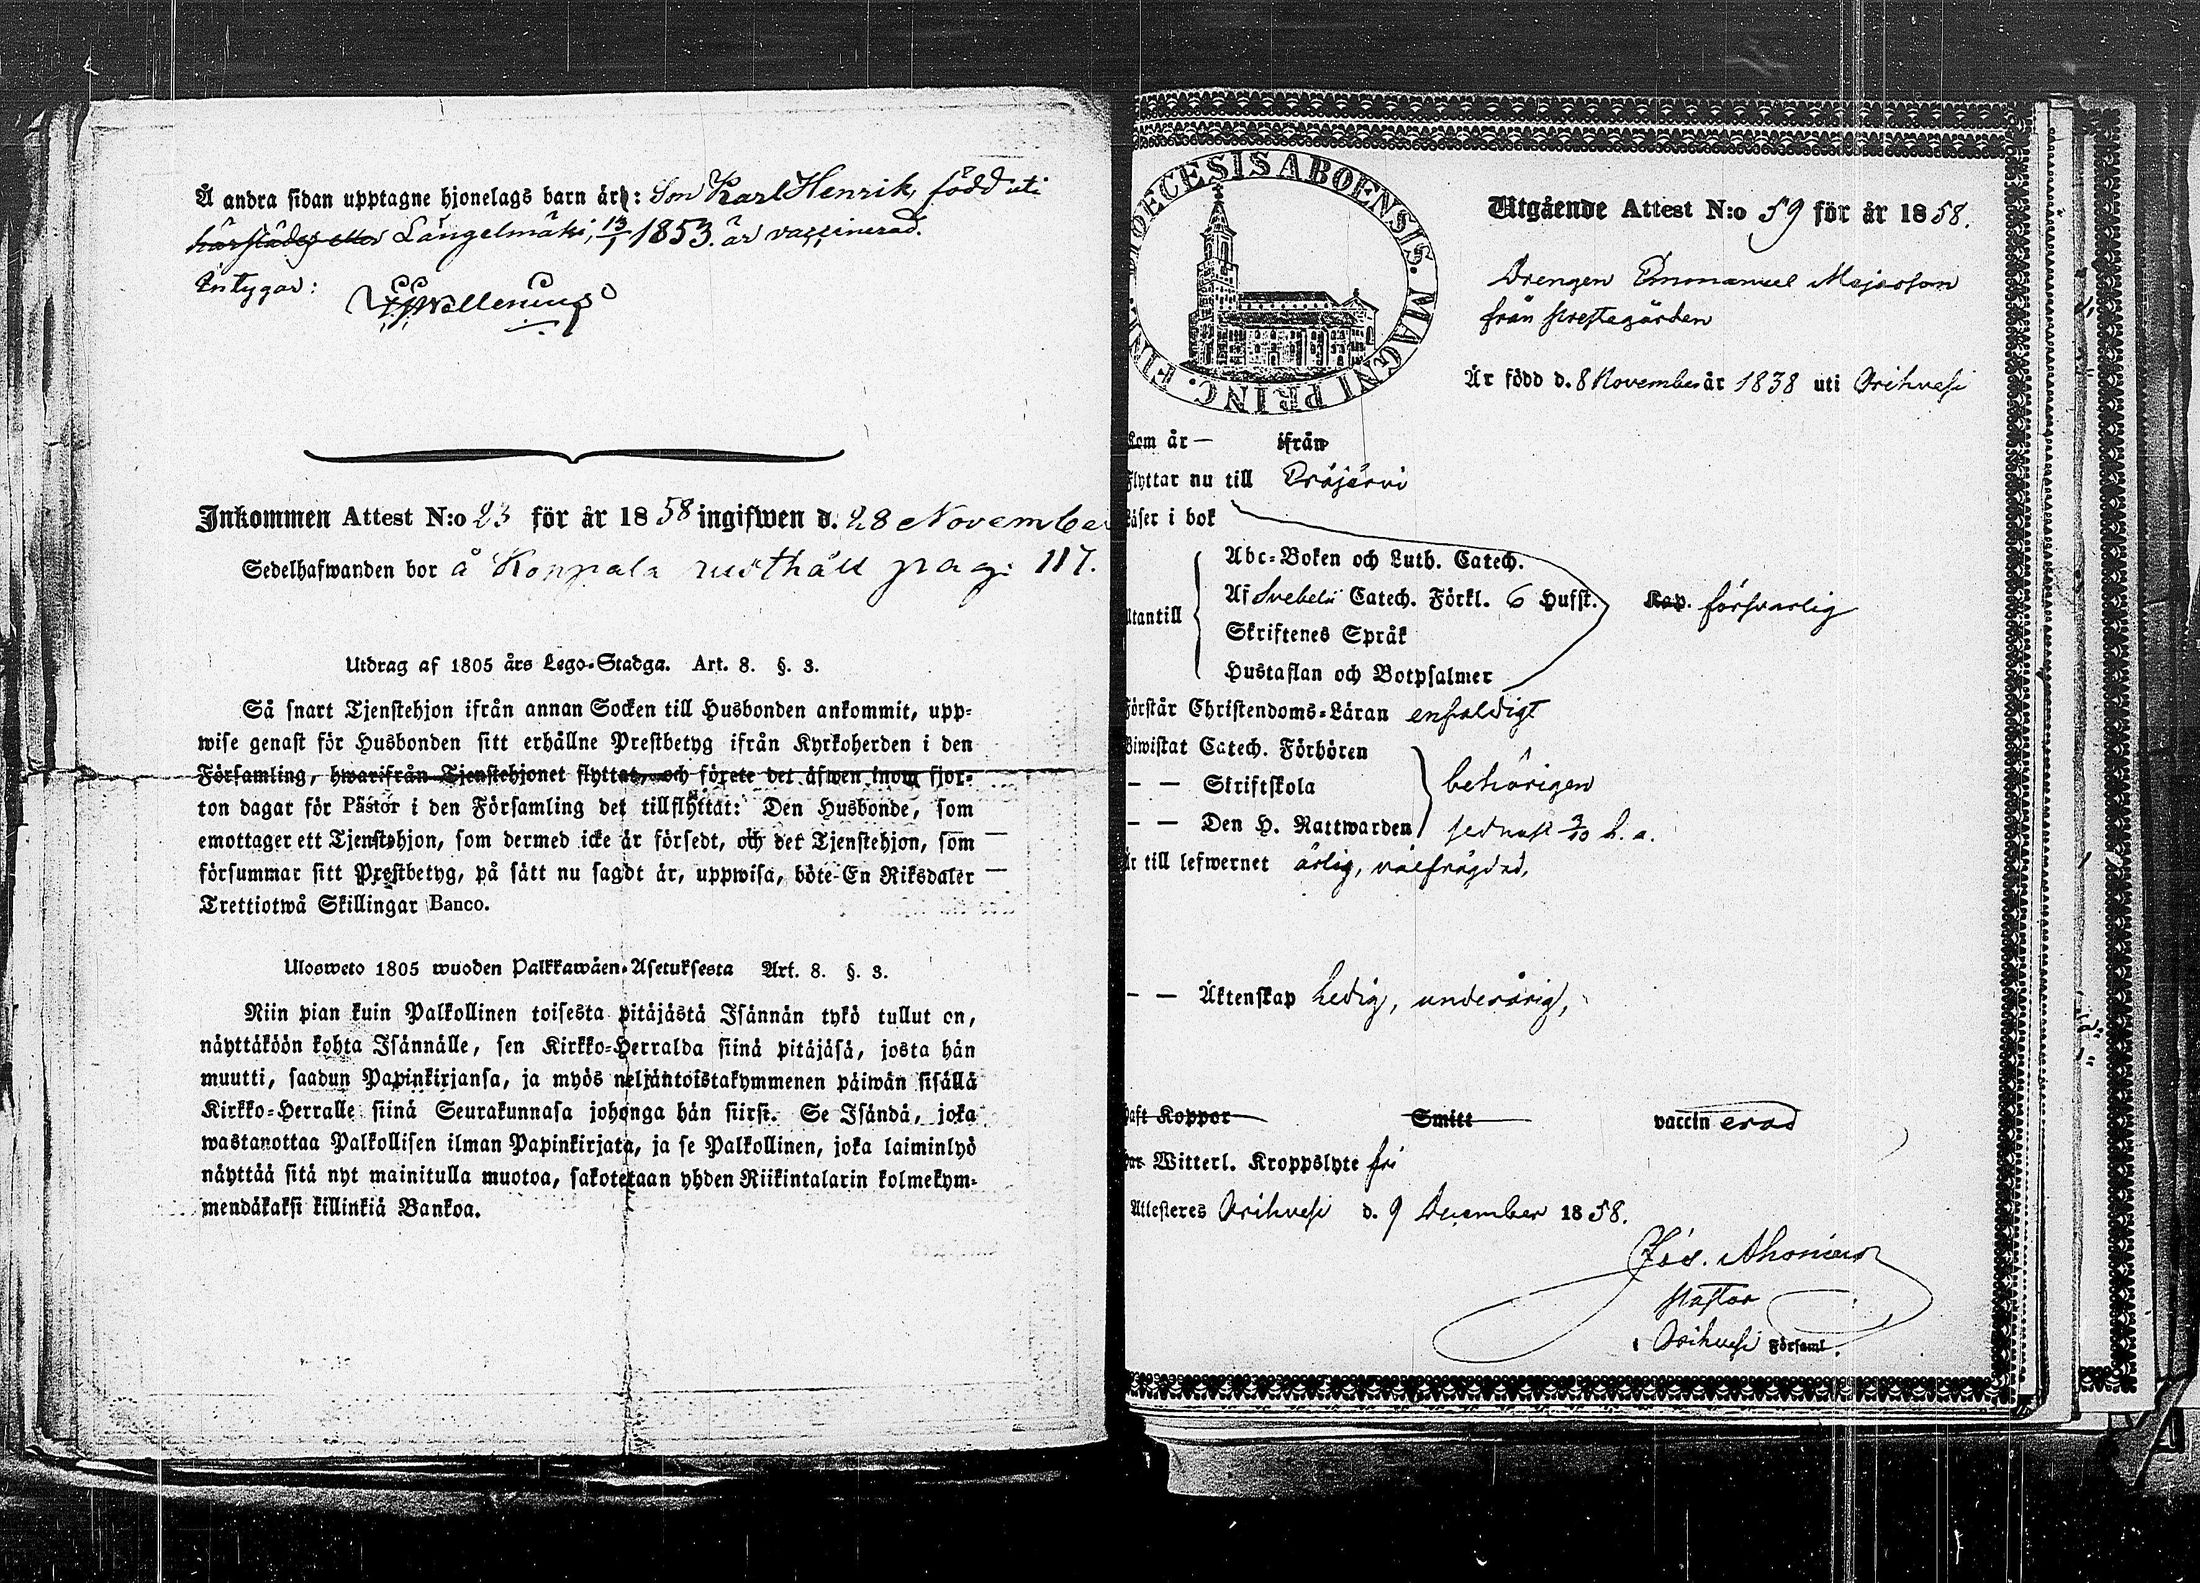 Å andra sidan upptagne hjonelags barn är: Son Karl Henrik, född uti
härstädes eller Längelmäki, 13/1 1853. är vaccinerad.
Intygar:
Inkommen Attest N:o 23 för år 1858 ingifwen d. 28 November
Sedelhafwanden bor å Koppala rusthåll pag: 117.
Utdrag af 1805 års Lego-Stadga. Art. 8. §. 3.
Så snart Tjenstehjon ifrån annan Socken till Husbonden ankommit, upp-
wise genast för Husbonden sitt erhållne Prestbetyg ifrån Kyrkoherden i den
Församling, hwarifrån Tjenstehjonet flyttat, och förete det äfwen inom fjor-
ton dagar för Pastor i den Församling det tillflyttat: Den Husbonde, som
emottager ett Tjenstehjon, som dermed icke är försedt, och det Tjenstehjon, som
försummar sitt Prestbetyg, på sätt nu sagdt är, uppwisa, böte En Riksdaler
Trettiotwå Skillingar Banco.
Ulosweto 1805 wuoden Palkkawäen-Asetuksesta Art. 8. §. 3.
Niin pian kuin Palkollinen toisesta pitäjästä Isännän tykö tullut on,
näyttäköön kohta Isännälle, sen Kirkko-Herralda siinä pitäjäsä, josta hän
muutti, saadun Papinkirjansa, ja myös neljäntoistakymmenen päiwän sisällä
Kirkko-Herralle siinä Seurakunnasa johonga hän siirsi. Se Isändä, joka
wastanottaa Palkollisen ilman Papinkirjata, ja se Palkollinen, joka laiminlyö
näyttää sitä nyt mainitulla muotoa, sakotetaan yhden Riikintalarin kolmekym-
mendäkaksi killinkiä Bankoa.
DIOECESIS ABOENSIS. MAGNI PRINC. FIN
Utgående Attest N:o 59 för år 1858.
Drengen Emmanuel Majasson
från prestegården
Är född d. 8 November år 1838 uti Orihvesi
Kom år — ifrån
Flyttar nu till Eräjärvi
Läser i bok
Utantill
Abc-Boken och Luth. Catech.
Af Svebelii Catech. Förkl. 6 Hufst. Kap. försvarlig
Skriftenes Språk
Hustaflan och Botpsalmer
Förstår Christendoms-Läran enfaldigt
Biwistat Catech. Förhören
— — Skriftskola behörigen
— — Den H. Nattwarden sednast 3/10 h. a.
Är till lefwernet ärlig, välfrägdad,
— — Äktenskap ledig, underårig,
Haft Koppor Smitt vaccinerad
Har Witterl. Kroppslyte fri
Attesteres Orihvesi d. 9 December 1858.
Jos. Ahonius
Pastor
i Orihvesi Församl.